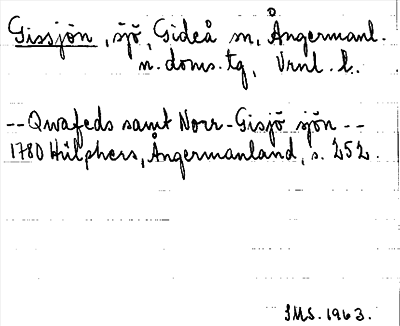 Gissjön, sjö, Gideå sn, Ångermanl.
n. doms. tg, Vrnl. l.
-- Qwafeds samt Norr-Gisjö sjön --
1780 Hülphers, Ångermanland, s. 252.
SMS. 1963.